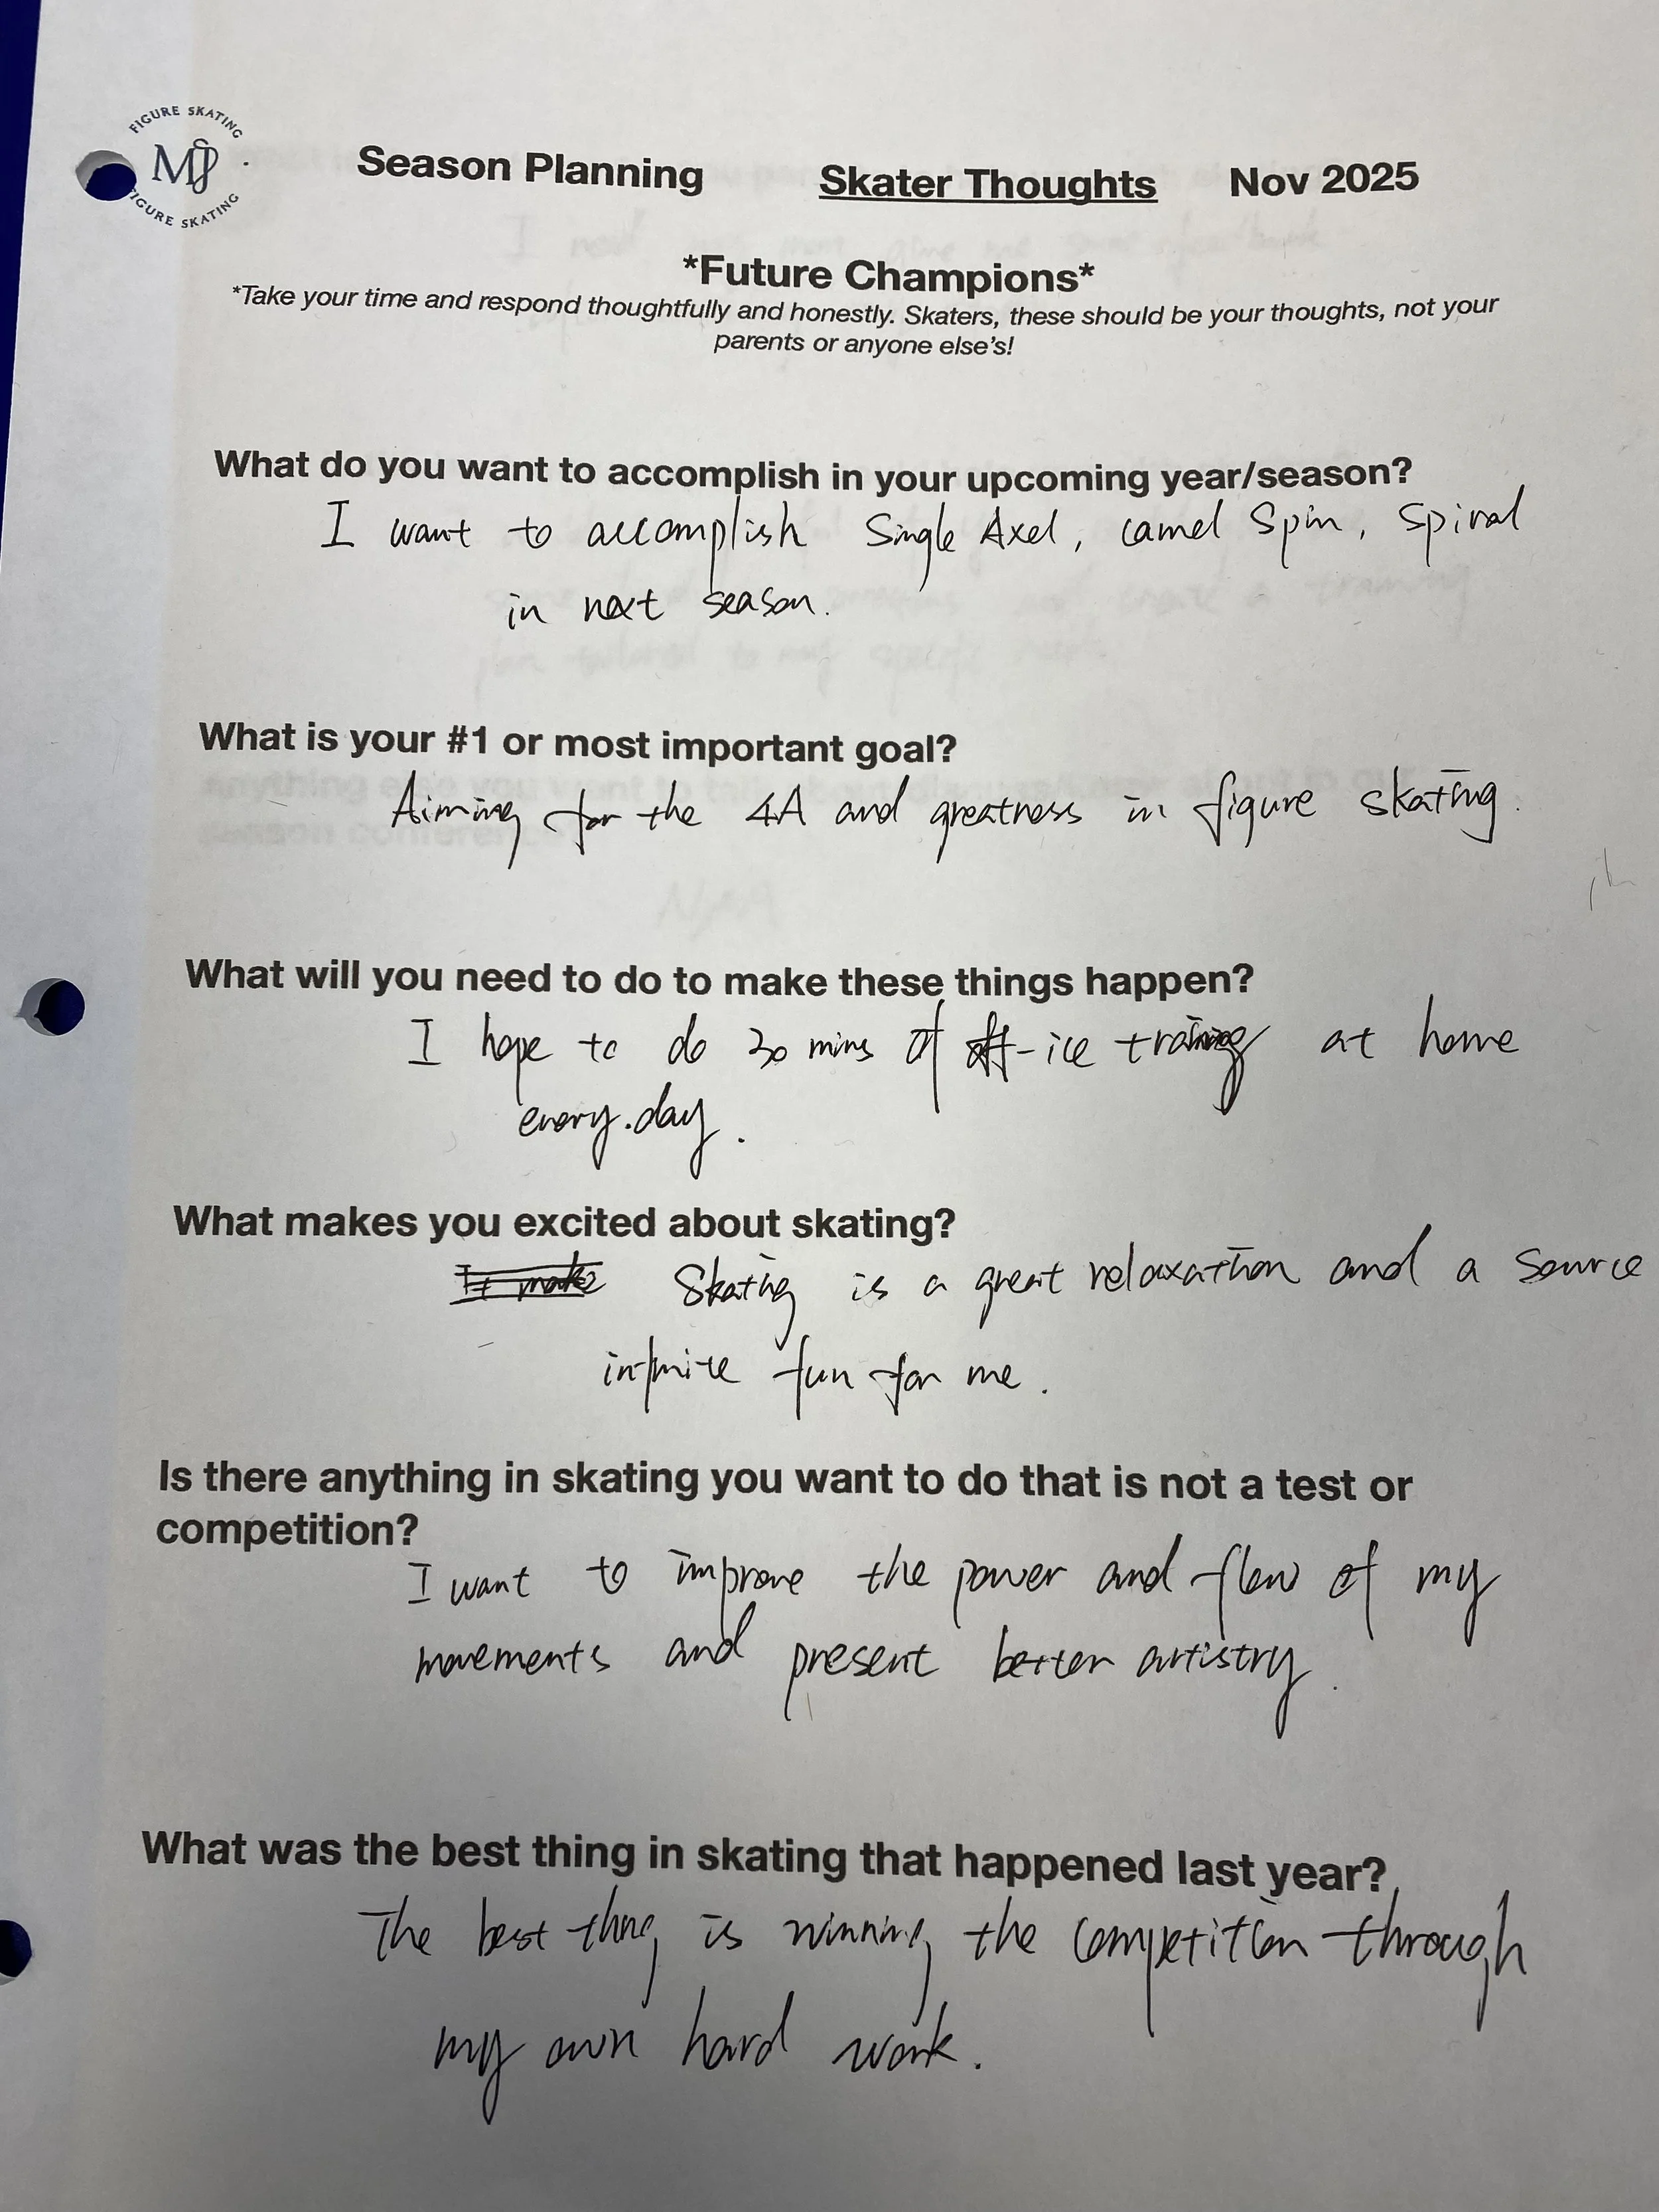 FIGURE SKATING
MJ
FIGURE SKATING
Season Planning Skater Thoughts Nov 2025
*Future Champions*
*Take your time and respond thoughtfully and honestly. Skaters, these should be your thoughts, not your
parents or anyone else's!
What do you want to accomplish in your upcoming year/season?
I want to accomplish Single Axel, camel Spin, Spiral
in next season.
What is your #1 or most important goal?
Aiming for the 4A and greatness in figure skating.
What will you need to do to make these things happen?
I hope to do 30 mins of off-ice training at home
every.day.
What makes you excited about skating?
It make Skating is a great relaxation and a source
infinite fun for me.
Is there anything in skating you want to do that is not a test or
competition?
I want to improve the power and flow of my
movements and present better artistry.
What was the best thing in skating that happened last year?
The best thing is winning the competition through
my own hard work.